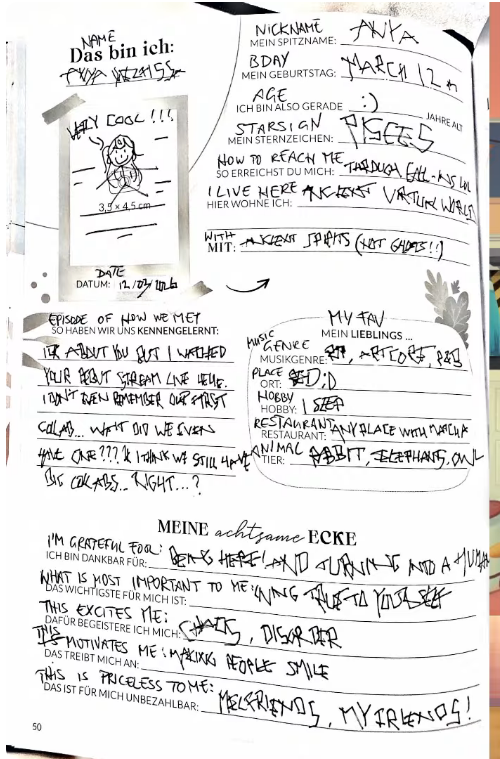 NAME
Das bin ich:
VERY COOL !!!
3,5 x 4,5 cm
DATE
DATUM: 12/03/
NICKNAME
MEIN SPITZNAME: ANYA
BDAY
MEIN GEBURTSTAG: MARCH 12th
AGE
ICH BIN ALSO GERADE :) JAHRE ALT
STARSIGN
MEIN STERNZEICHEN: PISCES
HOW TO REACH ME
SO ERREICHST DU MICH: THROUGH CALL-INS LOL
I LIVE HERE
HIER WOHNE ICH: ANCIENT VIRTUAL WORLD
WITH
MIT: ANCIENT SPIRITS (NOT GHOSTS!!)
EPISODE OF HOW WE MET
SO HABEN WIR UNS KENNENGELERNT:
ABOUT YOU BUT I WATCHED
YOUR DEBUT STREAM LIVE
I DON'T EVEN REMEMBER OUR FIRST
COLLAB... WHAT DID WE EVEN
HAVE ONE??? I THINK WE STILL HAVE
BIG COLLABS... RIGHT...?
MY FAV
MEIN LIEBLINGS ...
MUSIC GENRE
MUSIKGENRE: , ARTCORE, R&B
PLACE
ORT: BED;D
HOBBY
HOBBY: I SLEEP
RESTAURANT
RESTAURANT: ANY PLACE WITH MATCHA
ANIMAL
TIER: RABBIT, ELEPHANTS, OWL
MEINE achtsame ECKE
I'M GRATEFUL FOR:
ICH BIN DANKBAR FÜR: BEING HERE! AND TURNING INTO A HUMAN
WHAT IS MOST IMPORTANT TO ME:
DAS WICHTIGSTE FÜR MICH IST: TRUE TO YOURSELF
THIS EXCITES ME:
DAFÜR BEGEISTERE ICH MICH: CHAOS, DISORDER
THIS MOTIVATES ME:
DAS TREIBT MICH AN: MAKING PEOPLE SMILE
THIS IS PRICELESS TO ME:
DAS IST FÜR MICH UNBEZAHLBAR: MY FRIENDS!
50